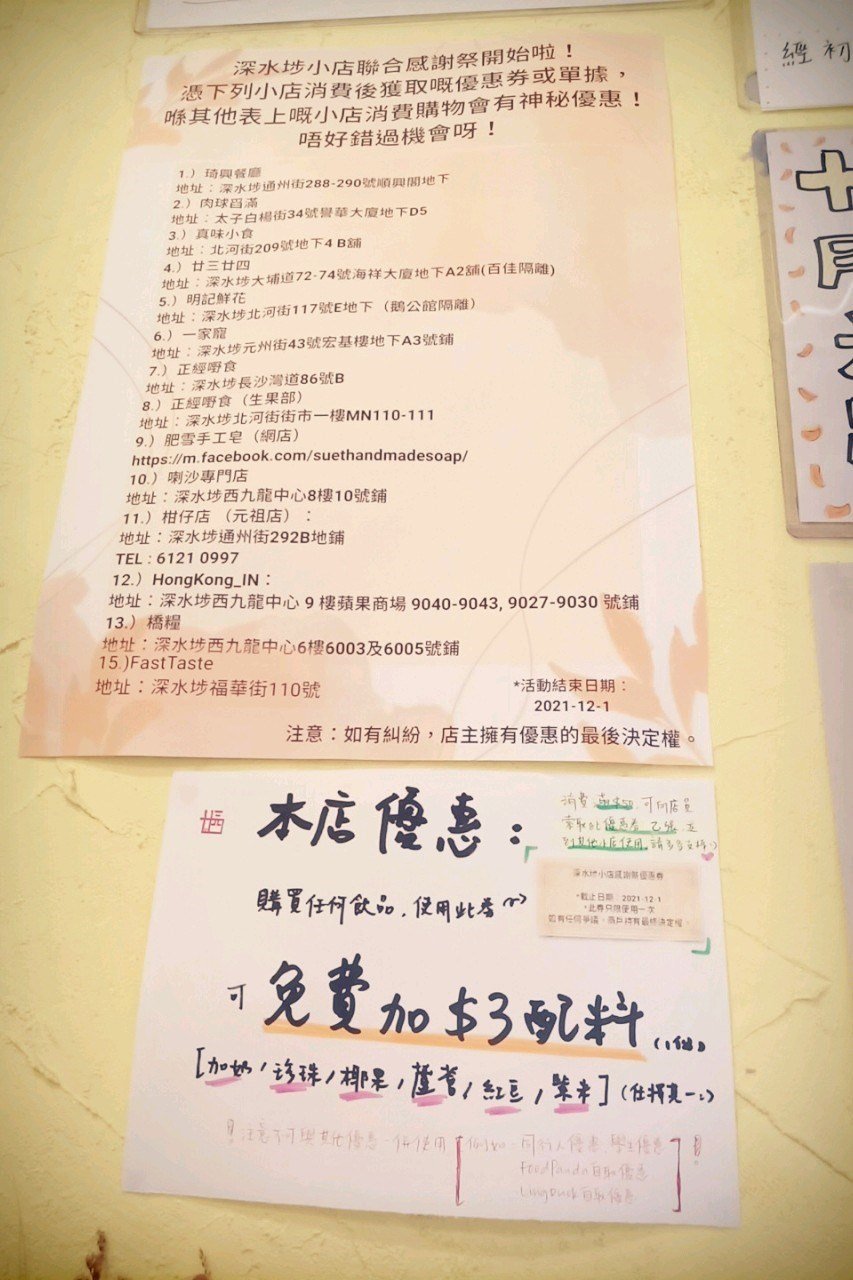 深水埗小店聯合感謝祭開始啦！
憑下列小店消費後獲取嘅優惠券或單據，
喺其他表上嘅小店消費購物會有神秘優惠！
唔好錯過機會呀！
1.）琦興餐廳
地址：深水埗通州街288-290號順興閣地下
2.）肉球舀滿
地址：太子白楊街34號譽華大廈地下D5
3.）真味小食
地址：北河街209號地下4 B舖
4.）廿三廿四
地址：深水埗大埔道72-74號海祥大廈地下A2舖(百佳隔離)
5.）明記鮮花
地址：深水埗北河街117號E地下（鵝公館隔離）
6.）一家寵
地址：深水埗元州街43號宏基樓地下A3號鋪
7.）正經嘢食
地址：深水埗長沙灣道86號B
8.）正經嘢食（生果部）
地址：深水埗北河街街市一樓MN110-111
9.）肥雪手工皂（網店）
https://m.facebook.com/suethandmadesoap/
10.）喇沙專門店
地址：深水埗西九龍中心8樓10號鋪
11.）柑仔店 （元祖店）：
地址：深水埗通州街292B地鋪
TEL : 6121 0997
12.）HongKong_IN：
地址：深水埗西九龍中心 9 樓蘋果商場 9040-9043, 9027-9030 號鋪
13.）橋糧
地址：深水埗西九龍中心6樓6003及6005號鋪
15.)FastTaste
地址：深水埗福華街110號
*活動結束日期：
2021-12-1
注意：如有糾紛，店主擁有優惠的最後決定權。
經初
十月
本店優惠：
消費滿$50 可向店員
索取此優惠券乙張 並
到其他小店使用 請多多支持
深水埗小店感謝祭優惠券
*截止日期：2021-12-1
*此券只限使用一次
如有任何爭議，商戶持有最終決定權。
購買任何飲品，使用此券
可免費加$3配料
[加奶/珍珠/椰果/蘆薈/紅豆/紫米] (任擇其一)
注意不可與其他優惠一併使用
例如 同行人優惠、學生優惠
Foodpanda自取優惠
自取優惠